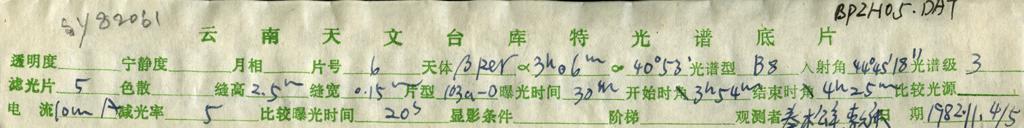 SY82061 BPZH05.DAT
云南天文台库特光谱底片
透明度 宁静度 月相 片号 6 天体 β per α 3h06m α 40°53' 光谱型 B8 入射角 44°45'18" 光谱级 3
滤光片 5 色散 缝高 2.5m 缝宽 0.15m 片型 103a-O 曝光时间 30m 开始时角 3h54m 结束时角 4h25m 比较光源
电流 10mA 减光率 5 比较曝光时间 20s 显影条件 阶梯 观测者 日期 1982.11.4/5